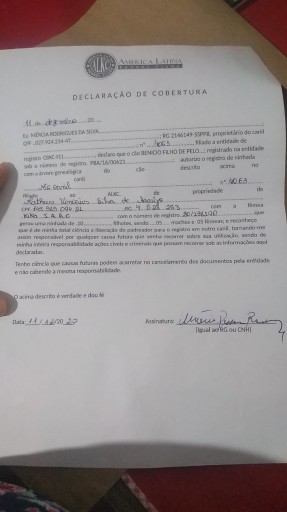 AMÉRICA LATINA
KENNEL CLUB
DECLARAÇÃO DE COBERTURA
11 de dezembro 20
Eu MÉRCIA RODRIGUES DA SILVA, RG 2146149-SSPPB, proprietário do canil
nº 4063 filiado a entidade de
declaro que o cão BENICIO FILHO DE PELO registrado na entidade
sob o número de registro, PBA/16/00621 autorizo o registro de ninhada
com a árvore genealógica do cão descrito acima no
canil
MS Geral nº 4063
filiado ao ALKC, de propriedade de
Matheus Vinicius Silva de
CPF RG com a fêmea
com o número de registro que
gerou uma ninhada de 10 filhotes, sendo 05 machos e 05 fêmeas; e reconheço
que é de minha total ciência a liberação do padreador para o registro em outro canil, tornando-me
assim responsável por qualquer causa futura que venha recorrer sobre sua utilização, sendo de
minha inteira responsabilidade ações civeis e criminais que possam recorrer sob as informações aqui
declaradas.
Tenho ciência que causas futuras podem acarretar no cancelamento dos documentos pela entidade
e não cabendo a mesma responsabilidade.
O acima descrito é verdade e dou fé
Data: 11/12/2020 Assinatura:
(Igual ao RG ou CNH)